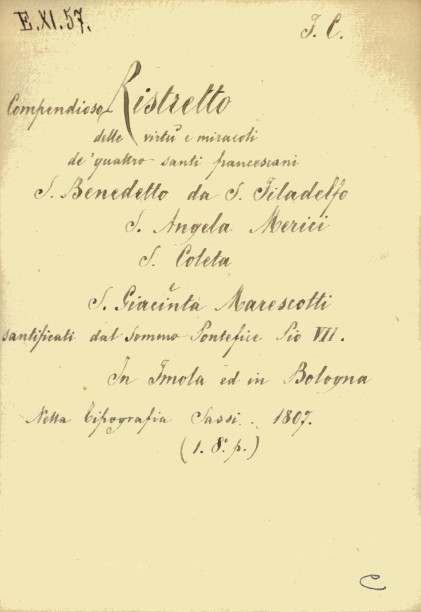 E.XI.57.
J. C.
Compendioso Ristretto
delle virtù e miracoli
de' quattro santi francescani
S. Benedetto da S. Filadelfo
S. Angela Merici
S. Coleta
e
S. Giacinta Marescotti
santificati dal Sommo Pontefice Pio VII.
In Imola ed in Bologna
Nella Tipografia Sassi. 1807.
(1. 8.° p.)
C